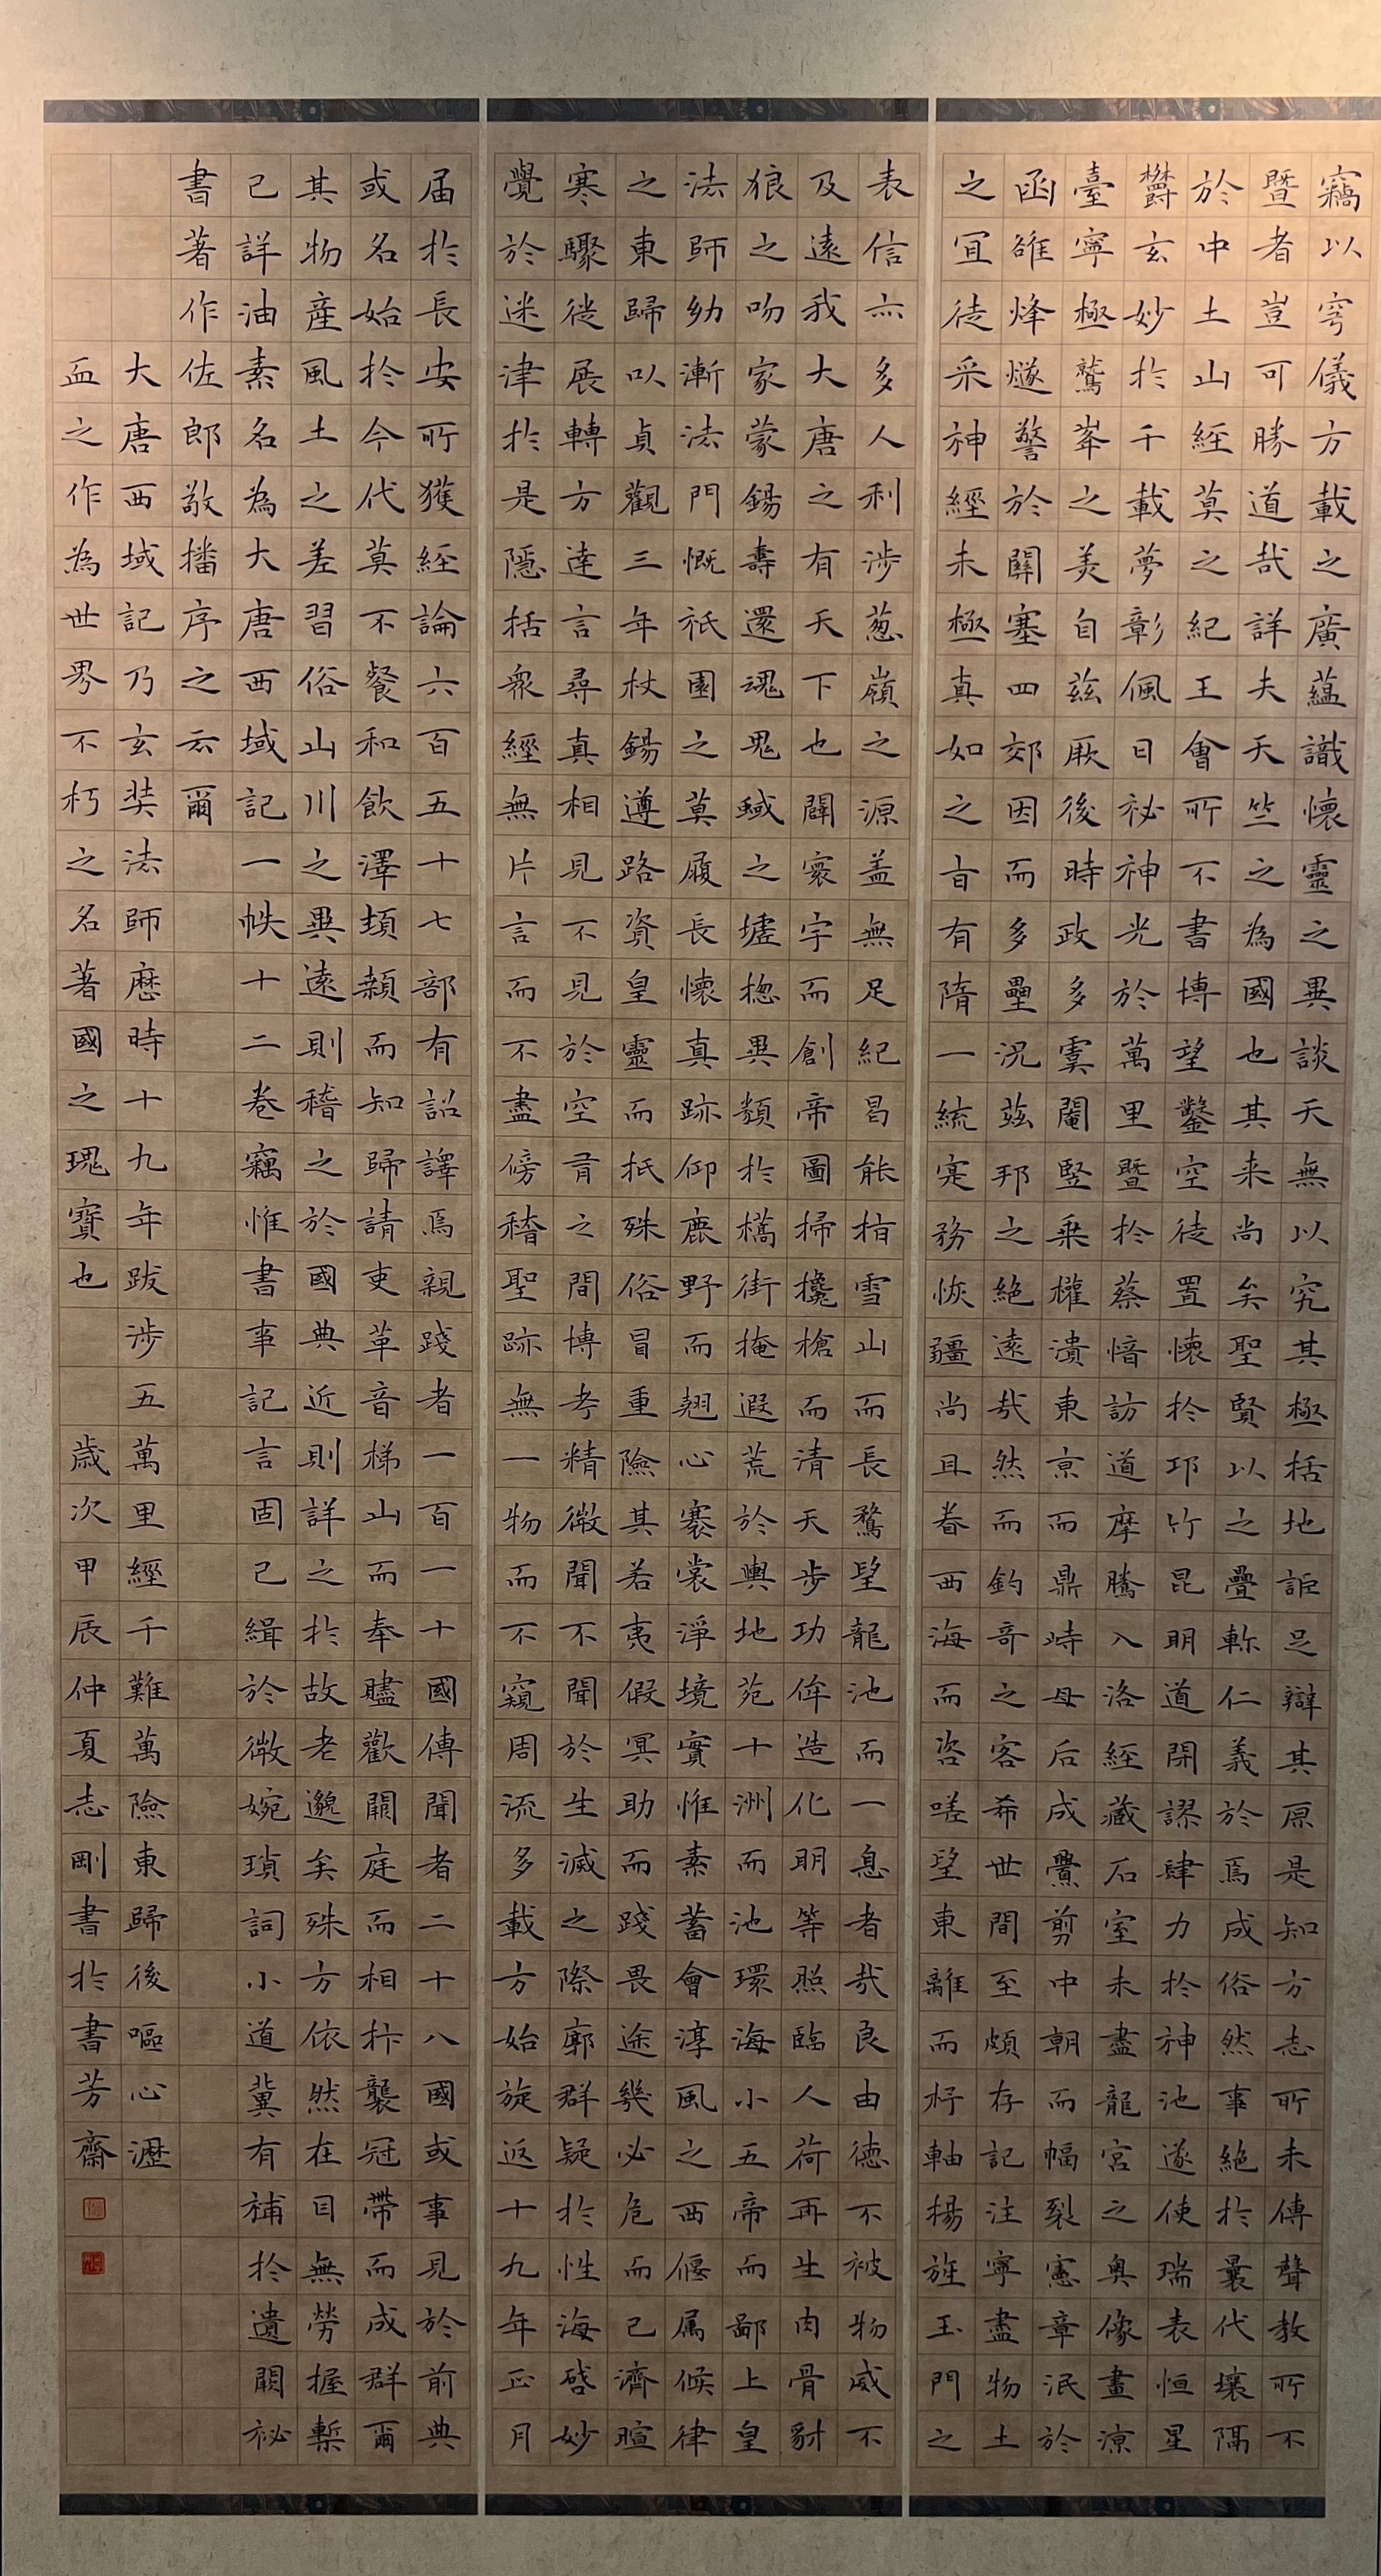 竊以穹儀方載之廣蘊識懷靈之異談天無以究其極括地詎足辯其原是知方志所未傳聲教所不
暨者豈可勝道哉詳夫天竺之為國也其来尚矣聖賢以之疊軫仁義於焉成俗然事絕於曩代壤隔
於中土山經莫之紀王會所不書博望鑿空徒置懷於邛竹昆明道閉謬肆力於神池遂使瑞表恒星
欝玄妙於千載夢彰佩日祕神光於萬里暨於蔡愔訪道摩騰入洛經藏石室未盡龍宮之奧像畫涼
臺寧極鷲峯之美自茲厥後時政多虞閹竪乗權潰東京而鼎峙母后成釁剪中朝而幅裂憲章泯於
函雒烽燧警於關塞四郊因而多壘況茲邦之絕遠哉然而釣奇之客希世間至頗存記注寧盡物土
之宜徒采神經未極真如之旨有隋一統寔務恢疆尚且眷西海而咨嗟望東離而杼軸揚旌玉門之
表信亦多人利涉葱嶺之源盖無足紀曷能指雪山而長騖望龍池而一息者哉良由德不被物威不
及遠我大唐之有天下也闢寰宇而創帝圖掃攙槍而清天步功侔造化明等照臨人荷再生肉骨豺
狼之吻家蒙錫壽還魂鬼蜮之墟揔異類於槁街掩遐荒於輿地苑十洲而池環海小五帝而鄙上皇
法師幼漸法門慨祇園之莫履長懷真跡仰鹿野而翹心褰裳淨境實惟素蓄會淳風之西偃属候律
之東歸以貞觀三年杖錫遵路資皇靈而抵殊俗冒重險其若夷假冥助而踐畏途幾必危而已濟暄
寒驟徙展轉方達言尋真相見不見於空有之間博考精微聞不聞於生滅之際廓群疑於性海啓妙
覺於迷津於是隱括衆經無片言而不盡傍稽聖跡無一物而不窺周流多載方始旋返十九年正月
届於長安所獲經論六百五十七部有詔譯焉親踐者一百一十國傳聞者二十八國或事見於前典
或名始於今代莫不餐和飲澤頓顙而知歸請吏革音梯山而奉贐歡闕庭而相抃襲冠帶而成群爾
其物産風土之差習俗山川之異遠則稽之於國典近則詳之於故老邈矣殊方依然在目無勞握槧
已詳油素名為大唐西域記一帙十二卷竊惟書事記言固已緝於微婉瑣詞小道冀有補於遺闕祕
書著作佐郎敬播序之云爾
大唐西域記乃玄奘法師歷時十九年跋涉五萬里經千難萬險東歸後嘔心瀝
血之作為世界不朽之名著國之瑰寶也 歲次甲辰仲夏志剛書於書芳齋